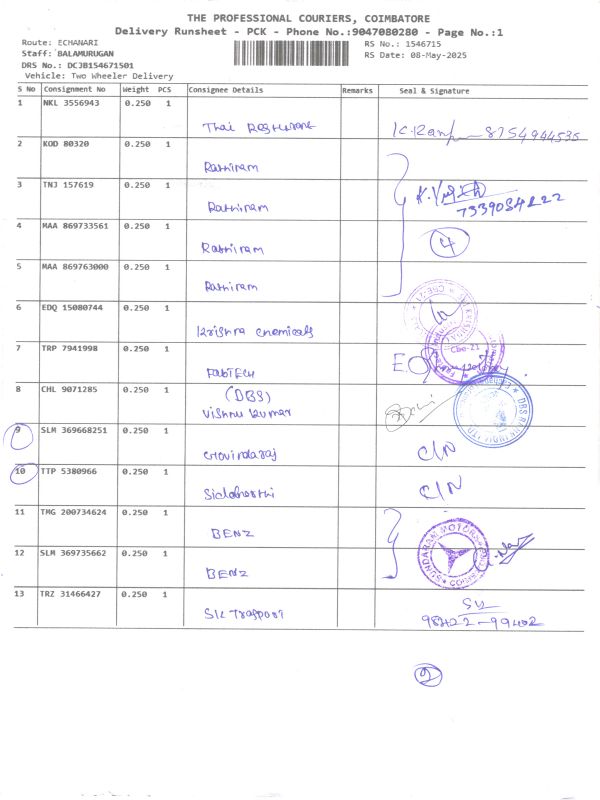 THE PROFESSIONAL COURIERS, COIMBATORE
Delivery Runsheet - PCK - Phone No.:9047080280 - Page No.:1
Route: ECHANARI RS No.: 1546715
Staff: BALAMURUGAN RS Date: 08-May-2025
DRS No.: DCJB154671501
Vehicle: Two Wheeler Delivery
S No Consignment No Weight PCS Consignee Details Remarks Seal & Signature
1 NKL 3556943 0.250 1
Thai
2 KOD 80320 0.250 1
Rathiram
3 TNJ 157619 0.250 1
Rathiram 7339084222
4 MAA 869733561 0.250 1
Rathiram 4
5 MAA 869763000 0.250 1
Rathiram
6 EDQ 15080744 0.250 1
Krishna chemicals
7 TRP 7941998 0.250 1
FABTECH
8 CHL 9071285 0.250 1
(DBS)
Vishnu kumar
9 SLM 369668251 0.250 1
Govindaraj C/N
10 TTP 5380966 0.250 1
C/N
11 TMG 200734624 0.250 1
BENZ
12 SLM 369735662 0.250 1
BENZ
SUNDARAM MOTORS
13 TRZ 31466427 0.250 1
98422-99402
2